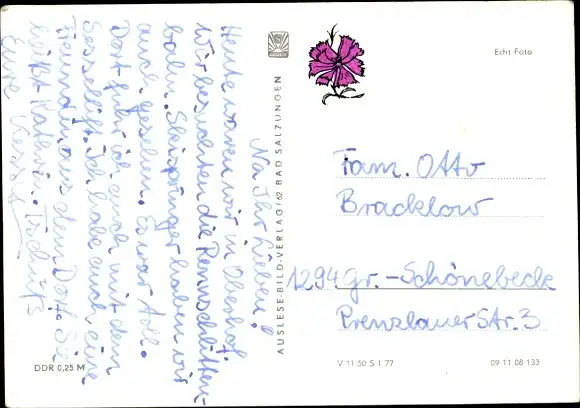 Na Ihr Lieben!
Heute waren wir in Oberhof.
Wir besuchten die Rennschlitten-
bahn. Skispringer haben wir
auch gesehen. Es war toll.
Dort fuhr ich auch mit dem
Sessellift. Ich habe auch eine
Freundin aus dem Dorf. Sie
heißt Kathrin. Tschüß
Eure
AUSLESE-BILD-VERLAG/62 BAD SALZUNGEN
Echt Foto
Fam. Otto
Bracklow
1294 Gr.-Schönebeck
Prenzlauer Str. 3
DDR 0,25 M
V 11 50 S 1 77
09 11 08 133